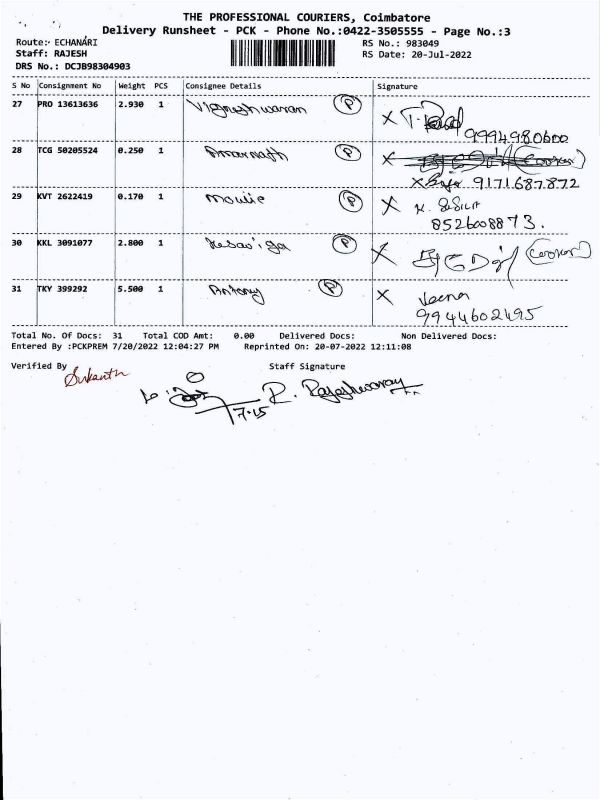 THE PROFESSIONAL COURIERS, Coimbatore
Delivery Runsheet - PCK - Phone No.:0422-3505555 - Page No.:3
Route:- ECHANARI RS No.: 983049
Staff: RAJESH RS Date: 20-Jul-2022
DRS No.: DCJB98304903
S No Consignment No Weight PCS Consignee Details Signature
27 PRO 13613636 2.930 1 Vigneshwaran P X
9994980600
28 TCG 50205524 0.250 1 Amarnath P X
X 9171687872
29 KVT 2622419 0.170 1 P X K.
8526008873.
30 KKL 3091077 2.800 1 P X
31 TKY 399292 5.500 1 Antony P X Veena
9944602495
Total No. Of Docs: 31 Total COD Amt: 0.00 Delivered Docs: Non Delivered Docs:
Entered By :PCKPREM 7/20/2022 12:04:27 PM Reprinted On: 20-07-2022 12:11:08
Verified By Staff Signature
Srikanth
7.15 R. Rajeshwaray